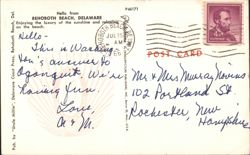 Hello from
REHOBOTH BEACH, DELAWARE
Enjoying the luxury of the sunshine and
on the beach.
POST CARD
Hello-
This is Washing
ton's answer to
Ogonquit. We're
having fun.
Love,
A & M.
Mr & Mrs Murray Nevins
102 Portland St
Rochester, New
Hampshire